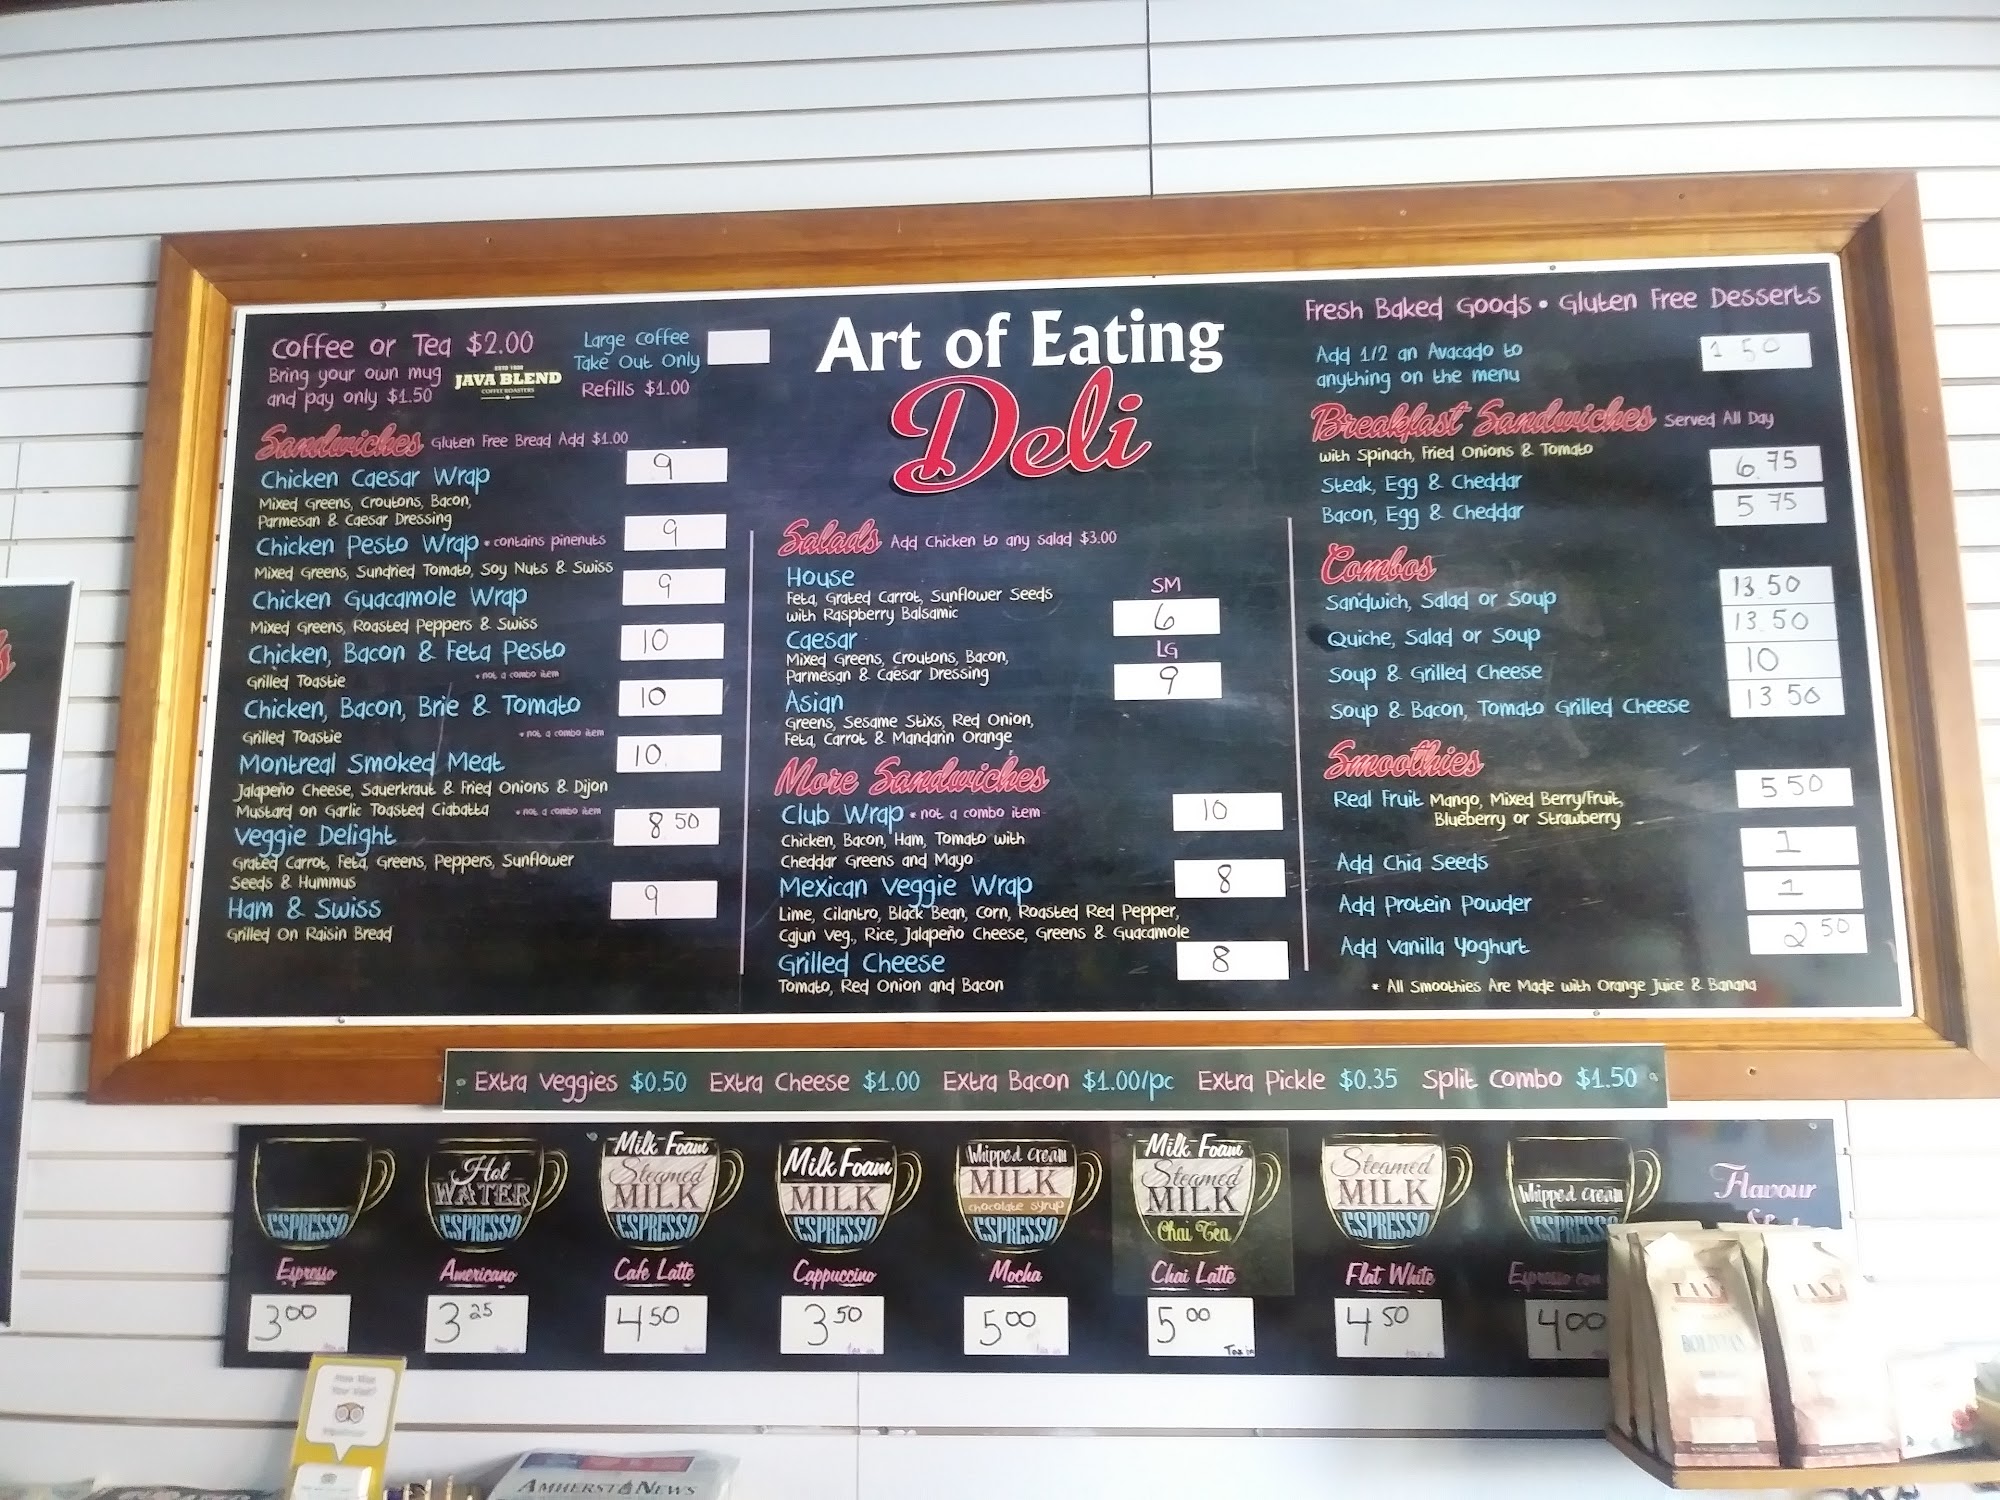 Coffee or Tea $2.00
Bring your own mug
and pay only $1.50
JAVA BLEND
COFFEE ROASTERS
Large Coffee
Take Out Only
Refills $1.00
Art of Eating
Deli
Sandwiches Gluten Free Bread Add $1.00
Chicken Caesar Wrap 9
Mixed Greens, Croutons, Bacon,
Parmesan & Caesar Dressing
Chicken Pesto Wrap • contains pinenuts 9
Mixed Greens, Sundried Tomato, Soy Nuts & Swiss
Chicken Guacamole Wrap 9
Mixed Greens, Roasted Peppers & Swiss
Chicken, Bacon & Feta Pesto 10
Grilled Toastie • not a combo item
Chicken, Bacon, Brie & Tomato 10
Grilled Toastie • not a combo item
Montreal Smoked Meat 10.
Jalapeño Cheese, Sauerkraut & Fried Onions & Dijon
Mustard on Garlic Toasted Ciabatta • not a combo item
Veggie Delight 8 50
Grated Carrot, Feta, Greens, Peppers, Sunflower
Seeds & Hummus
Ham & Swiss 9
Grilled On Raisin Bread
Salads Add Chicken to any salad $3.00
House
Feta, Grated Carrot, Sunflower Seeds
with Raspberry Balsamic
SM
6
Caesar
Mixed Greens, Croutons, Bacon,
Parmesan & Caesar Dressing
LG
9
Asian
Greens, Sesame Stixs, Red Onion,
Feta, Carrot & Mandarin Orange
More Sandwiches
Club Wrap • not a combo item 10
Chicken, Bacon, Ham, Tomato with
Cheddar Greens and Mayo
Mexican Veggie Wrap 8
Lime, Cilantro, Black Bean, Corn, Roasted Red Pepper,
Cajun Veg., Rice, Jalapeño Cheese, Greens & Guacamole
Grilled Cheese 8
Tomato, Red Onion and Bacon
Fresh Baked Goods • Gluten Free Desserts
Add 1/2 an Avacado to
anything on the menu
1 50
Breakfast Sandwiches Served All Day
with Spinach, Fried Onions & Tomato
Steak, Egg & Cheddar 6.75
Bacon, Egg & Cheddar 5 75
Combos
Sandwich, Salad or Soup 13.50
Quiche, Salad or Soup 13.50
Soup & Grilled Cheese 10
Soup & Bacon, Tomato Grilled Cheese 13 50
Smoothies
Real Fruit Mango, Mixed Berry/Fruit,
Blueberry or Strawberry
5 50
Add Chia Seeds 1
Add Protein Powder 1
Add Vanilla Yoghurt 2 50
* All Smoothies Are Made with Orange Juice & Banana
Extra Veggies $0.50 Extra Cheese $1.00 Extra Bacon $1.00/pc Extra Pickle $0.35 Split Combo $1.50
ESPRESSO
Espresso
3 00
Hot
WATER
ESPRESSO
Americano
3 25
Milk Foam
Steamed
MILK
ESPRESSO
Cafe Latte
4 50
Milk Foam
MILK
ESPRESSO
Cappuccino
3 50
Whipped Cream
MILK
chocolate syrup
ESPRESSO
Mocha
5 00
Milk Foam
Steamed
MILK
Chai Tea
Chai Latte
5 00
Tax in
Steamed
MILK
ESPRESSO
Flat White
4 50
Whipped Cream
ESPRESSO
Espresso con
4 00
Flavour
How Was
Your Visit?
AMHERST NEWS